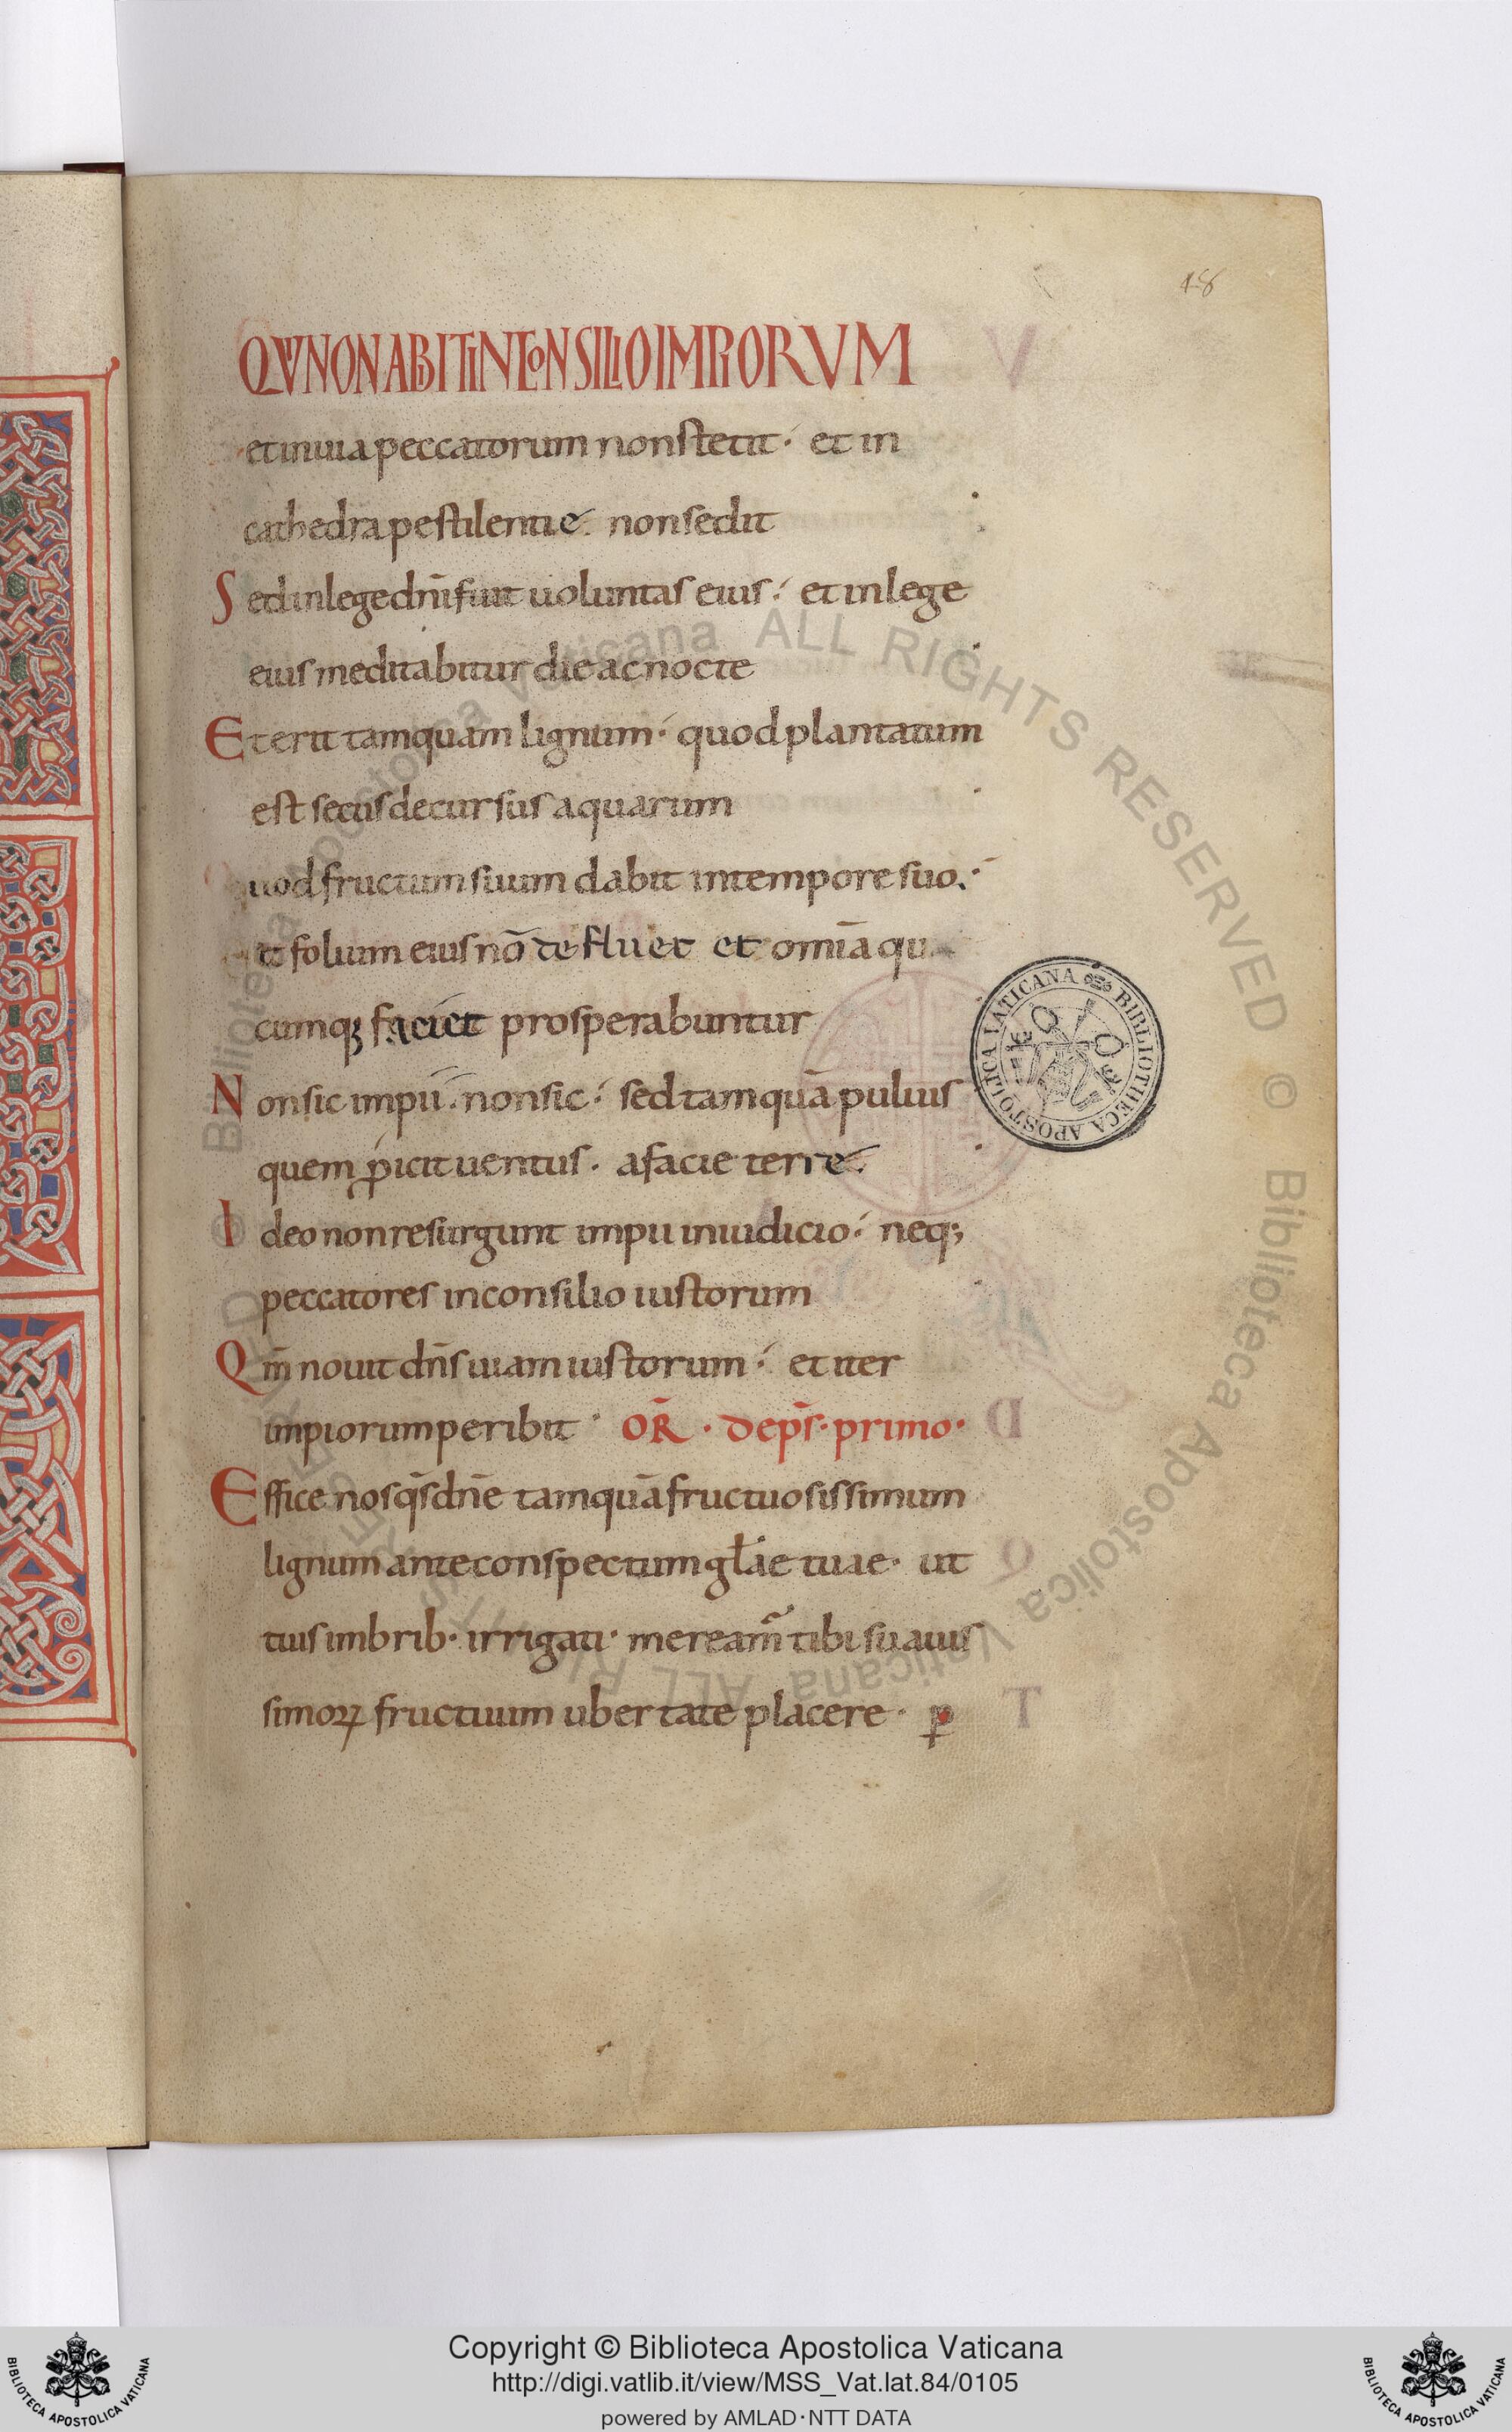 48
QVI NON ABIIT IN CONSILIO IMPIORVM
et in uia peccatorum non stetit· et in
cathedra pestilentię· non sedit
Sed in lege dn̄i fuit uoluntas eius· et in lege
eius meditabitur die ac nocte
Et erit tamquam lignum· quod plantatum
est secus decursus aquarum
quod fructum suum dabit in tempore suo·
et folium eius nō defluet et omīa
cumq; faciet prosperabuntur
Non sic impii· non sic· sed tamquā puluis
quem ꝓicit uentus· a facie terrę·
Ideo non resurgunt impii in iudicio· neq;
peccatores in consilio iustorum
Qm̄ nouit dn̄s uiam iustorum· et iter
impiorum peribit· OR̄· de ps̄· primo·
Effice nos qs̄ dn̄e tamquā fructuosissimum
lignum ante conspectum gƚae tuae· ut
tuis imbrib· irrigati· meream̄ tibi suauis
simoꝝ fructuum ubertate placere· ꝑ
BIBLIOTHECA APOSTOLICA VATICANA
© Biblioteca Apostolica Vaticana ALL RIGHTS RESERVED © Biblioteca Apostolica Vaticana ALL RIGHTS RESERVED
Copyright © Biblioteca Apostolica Vaticana
http://digi.vatlib.it/view/MSS_Vat.lat.84/0105
powered by AMLAD·NTT DATA
BIBLIOTECA APOSTOLICA VATICANA
BIBLIOTECA APOSTOLICA VATICANA